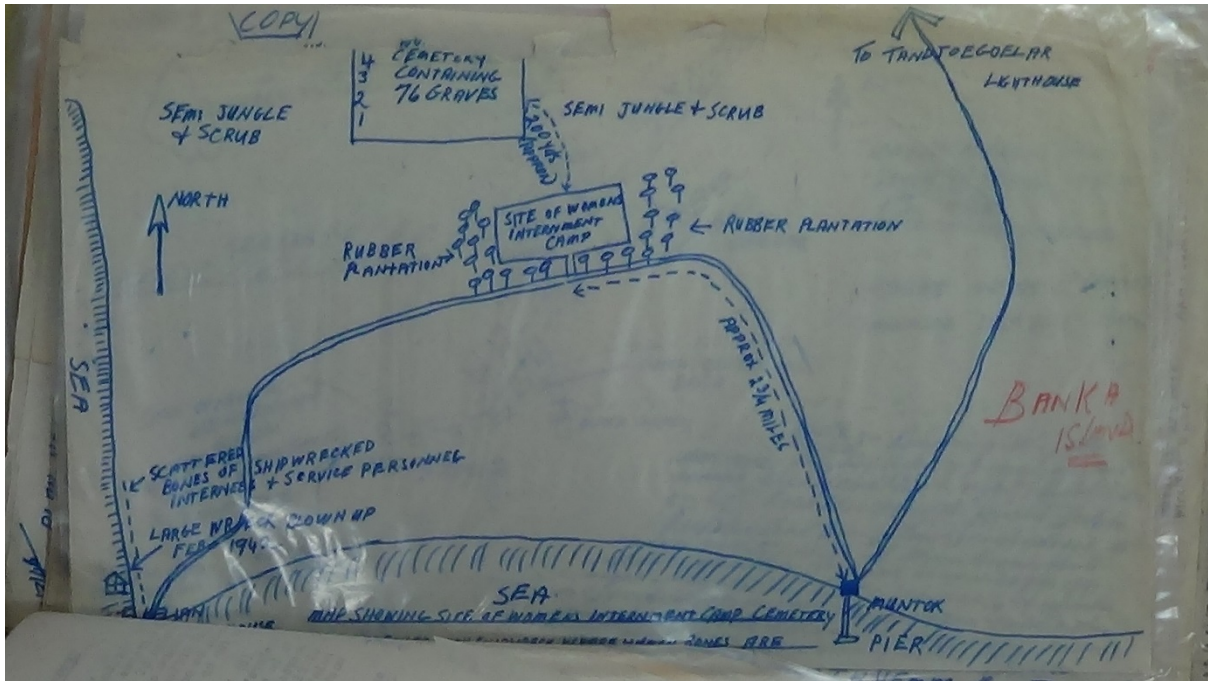 COPY
4 CEMETORY
3 CONTAINING
2 76 GRAVES
1
SEMI JUNGLE
& SCRUB
SEMI JUNGLE & SCRUB
200 yds
APPROX
TO TANDJOEGOELAR
LIGHTHOUSE
NORTH
SITE OF WOMENS
INTERNMENT
CAMP
RUBBER
PLANTATION
RUBBER PLANTATION
SEA
APPROX 2 3/4 MILES
BANKA
ISLAND
SCATTERED
BONES OF SHIPWRECKED
INTERNEES & SERVICE PERSONNEL
LARGE WRECK BLOWN UP
FEB 194
SEA
MAP SHOWING SITE OF WOMENS INTERNMENT CAMP CEMETERY
BONES ARE
MUNTOK
PIER